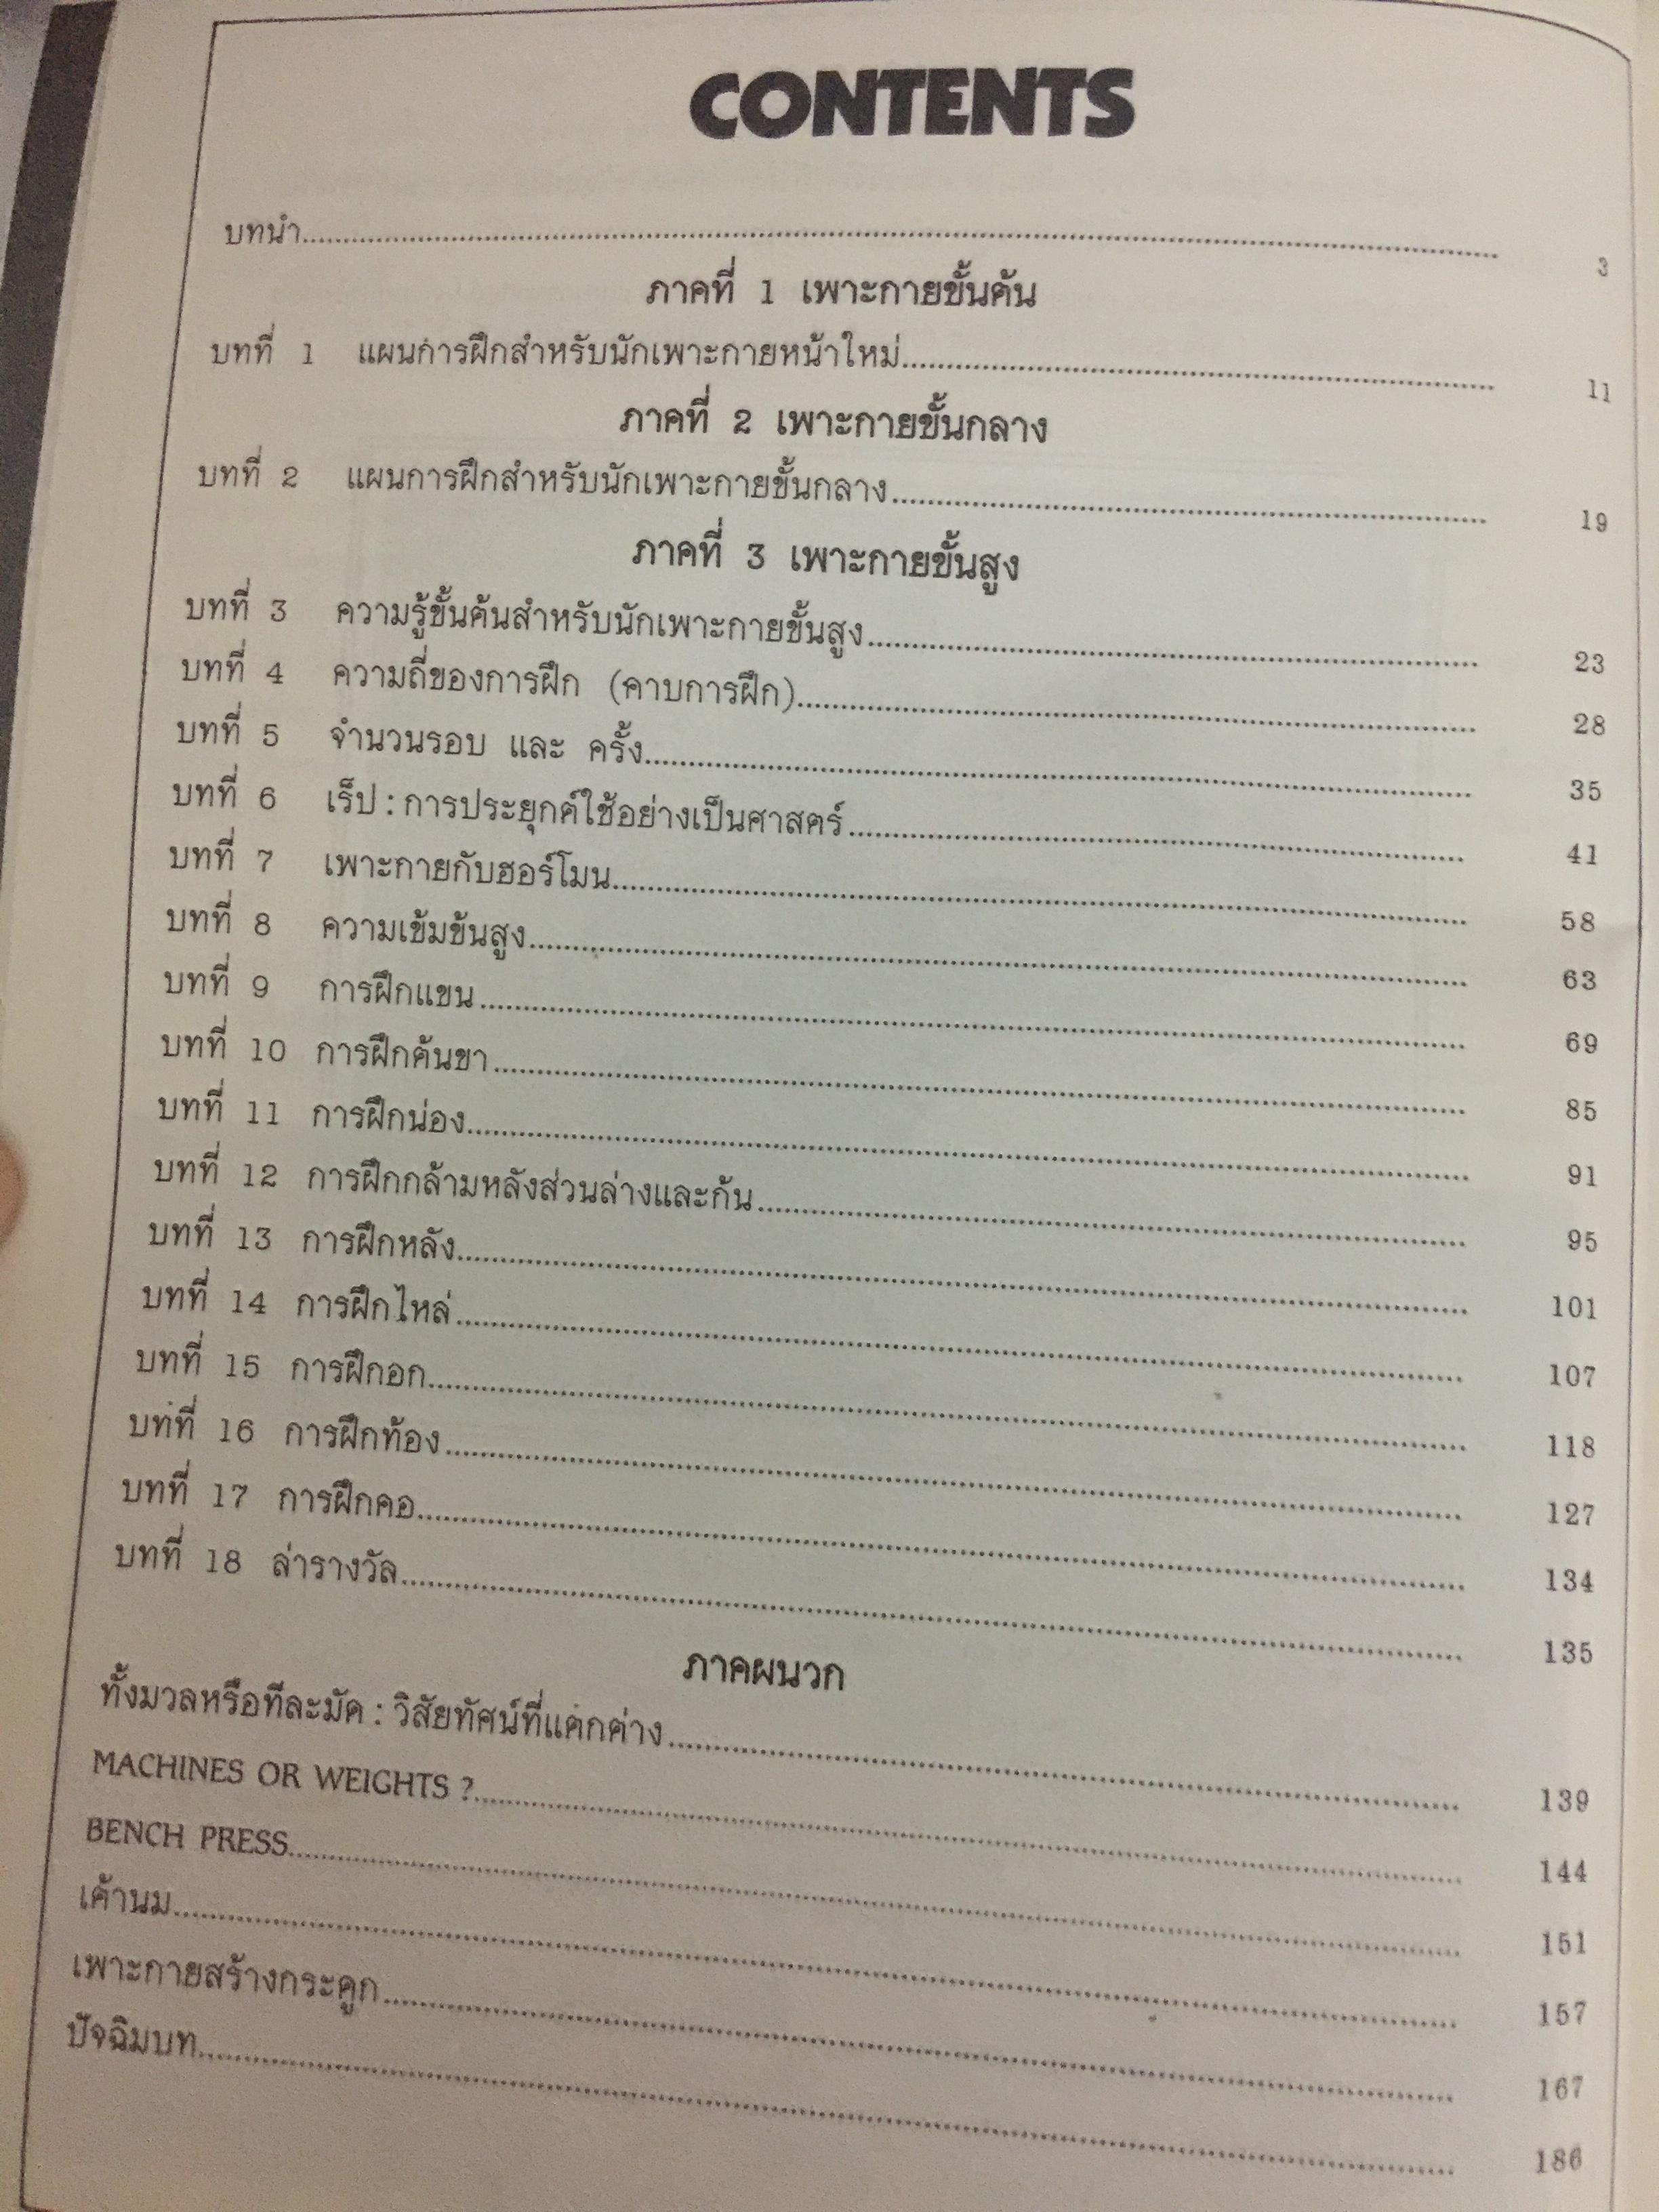 CONTENTS
บทนำ 3
ภาคที่ 1 เพาะกายขั้นต้น
บทที่ 1 แผนการฝึกสำหรับนักเพาะกายหน้าใหม่ 11
ภาคที่ 2 เพาะกายขั้นกลาง
บทที่ 2 แผนการฝึกสำหรับนักเพาะกายขั้นกลาง 19
ภาคที่ 3 เพาะกายขั้นสูง
บทที่ 3 ความรู้ขั้นต้นสำหรับนักเพาะกายขั้นสูง 23
บทที่ 4 ความถี่ของการฝึก (คาบการฝึก) 28
บทที่ 5 จำนวนรอบ และ ครั้ง 35
บทที่ 6 เร็ป : การประยุกต์ใช้อย่างเป็นศาสตร์ 41
บทที่ 7 เพาะกายกับฮอร์โมน 58
บทที่ 8 ความเข้มข้นสูง 63
บทที่ 9 การฝึกแขน 69
บทที่ 10 การฝึกต้นขา 85
บทที่ 11 การฝึกน่อง 91
บทที่ 12 การฝึกกล้ามหลังส่วนล่างและก้น 95
บทที่ 13 การฝึกหลัง 101
บทที่ 14 การฝึกไหล่ 107
บทที่ 15 การฝึกอก 118
บทที่ 16 การฝึกท้อง 127
บทที่ 17 การฝึกคอ 134
บทที่ 18 ล่ารางวัล 135
ภาคผนวก
ทั้งมวลหรือทีละมัด : วิสัยทัศน์ที่แตกต่าง 139
MACHINES OR WEIGHTS ? 144
BENCH PRESS 151
เต้านม 157
เพาะกายสร้างกระดูก 167
ปัจฉิมบท 186